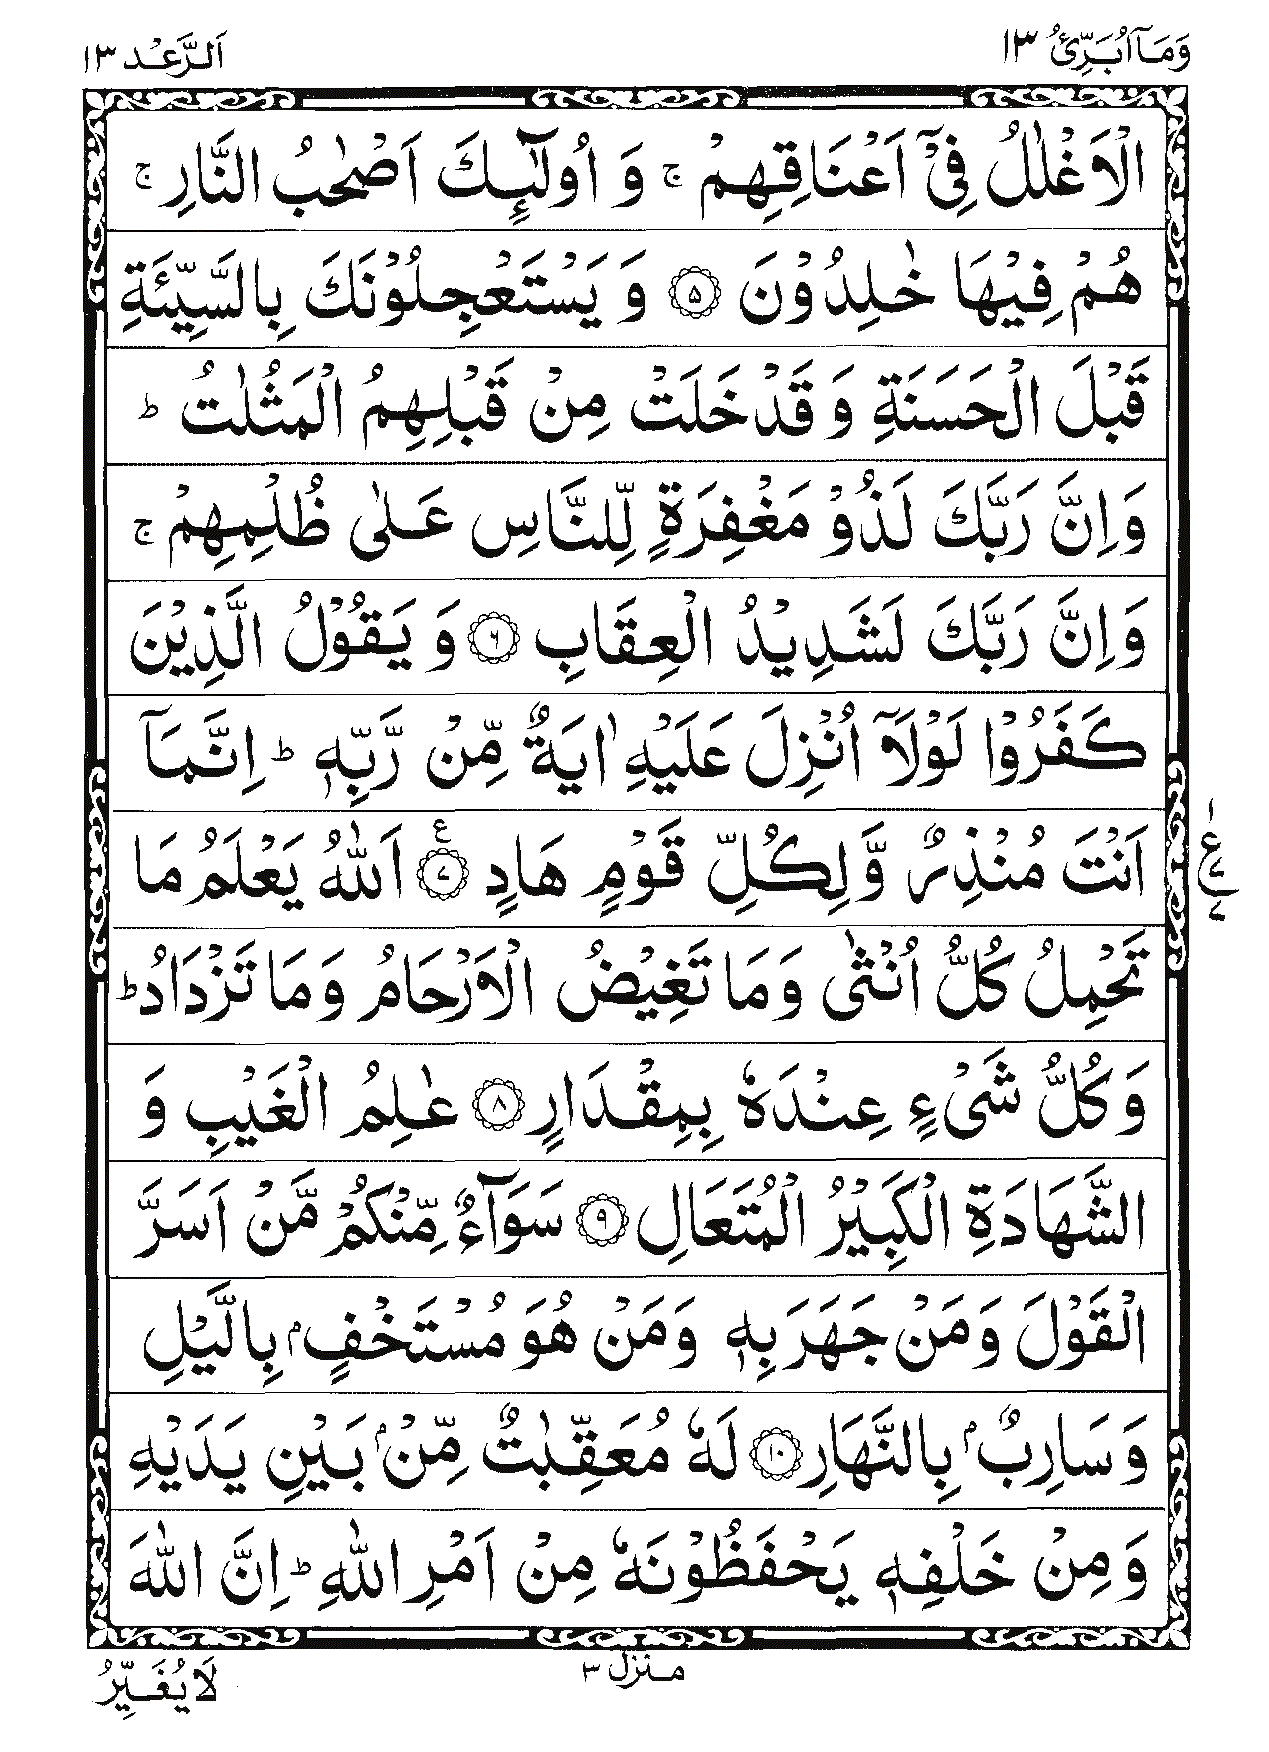 وَمَآ اُبَرِّئُ ١٣
اَلرَّعْد ١٣
الْاَغْلٰلُ فِیْۤ اَعْنَاقِهِمْ ۚ وَ اُولٰٓىِٕكَ اَصْحٰبُ النَّارِ ۚ
هُمْ فِیْهَا خٰلِدُوْنَ ۵ وَ یَسْتَعْجِلُوْنَكَ بِالسَّیِّئَةِ
قَبْلَ الْحَسَنَةِ وَ قَدْ خَلَتْ مِنْ قَبْلِهِمُ الْمَثُلٰتُ ؕ
وَاِنَّ رَبَّكَ لَذُوْ مَغْفِرَةٍ لِّلنَّاسِ عَلٰی ظُلْمِهِمْ ۚ
وَاِنَّ رَبَّكَ لَشَدِیْدُ الْعِقَابِ ۶ وَ یَقُوْلُ الَّذِیْنَ
كَفَرُوْا لَوْلَاۤ اُنْزِلَ عَلَیْهِ اٰیَةٌ مِّنْ رَّبِّهٖ ؕ اِنَّمَاۤ
اَنْتَ مُنْذِرٌ وَّلِكُلِّ قَوْمٍ هَادٍ ۷ ع اَللّٰهُ یَعْلَمُ مَا
١ ع ۷ ۷
تَحْمِلُ كُلُّ اُنْثٰی وَمَا تَغِیْضُ الْاَرْحَامُ وَمَا تَزْدَادُ ؕ
وَكُلُّ شَیْءٍ عِنْدَهٗ بِمِقْدَارٍ ۸ عٰلِمُ الْغَیْبِ وَ
الشَّهَادَةِ الْكَبِیْرُ الْمُتَعَالِ ۹ سَوَآءٌ مِّنْكُمْ مَّنْ اَسَرَّ
الْقَوْلَ وَمَنْ جَهَرَ بِهٖ وَمَنْ هُوَ مُسْتَخْفٍۭ بِالَّیْلِ
وَسَارِبٌۢ بِالنَّهَارِ ۱۰ لَهٗ مُعَقِّبٰتٌ مِّنْۢ بَیْنِ یَدَیْهِ
وَمِنْ خَلْفِهٖ یَحْفَظُوْنَهٗ مِنْ اَمْرِ اللّٰهِ ؕ اِنَّ اللّٰهَ
مـنزل ٣
لَا یُغَیِّرُ